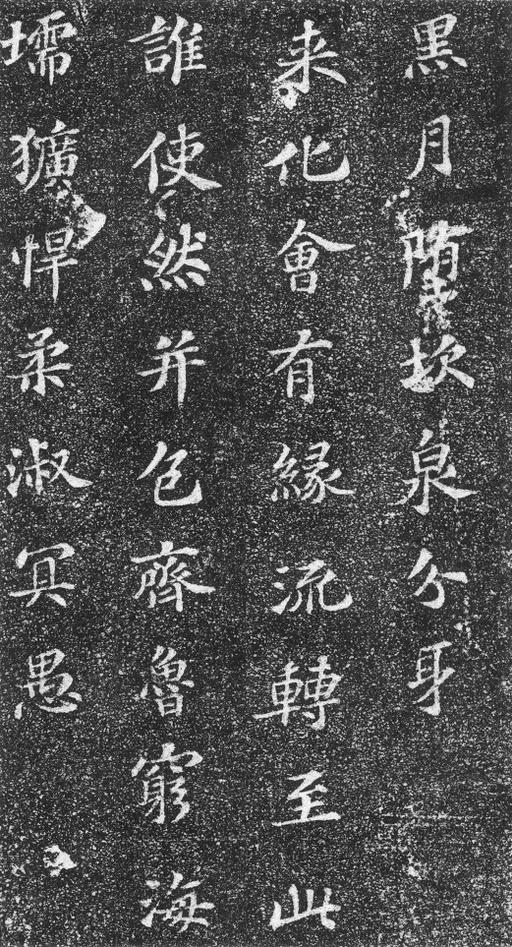 黑月隋坎泉分身
来化會有緣流轉至此
誰使然并包齊魯窮海
壖獷悍柔淑冥愚